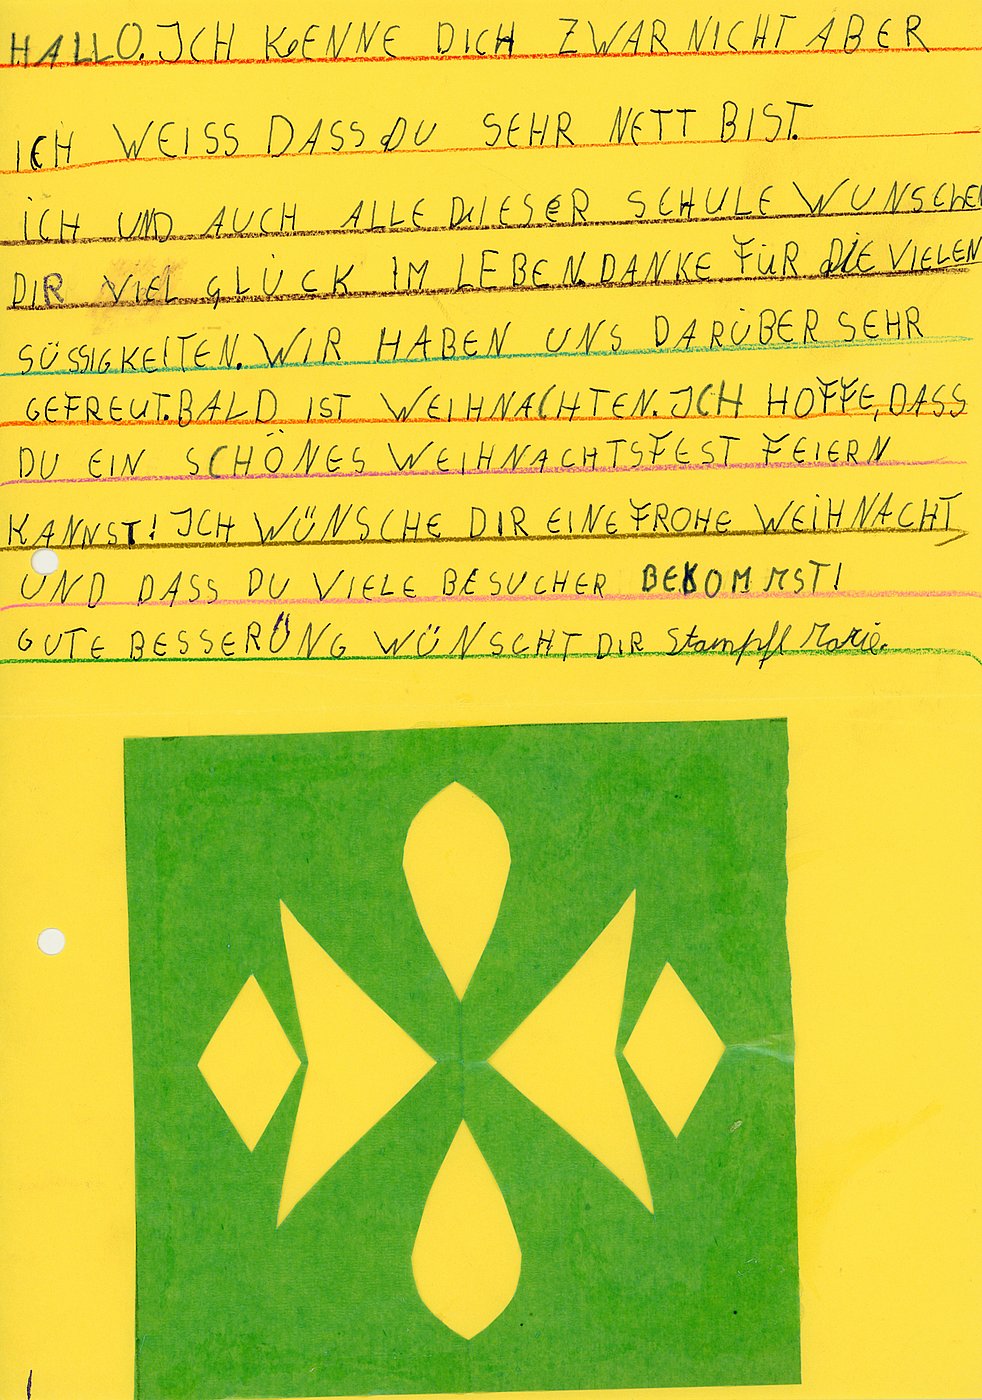 HALLO. ICH KOENNE DICH ZWAR NICHT ABER
ICH WEISS DASS DU SEHR NETT BIST.
ICH UND AUCH ALLE DIESER SCHULE WUNSCHEN
DIR VIEL GLÜCK IM LEBEN. DANKE FÜR DIE VIELEN
SÜSSIGKEITEN. WIR HABEN UNS DARÜBER SEHR
GEFREUT. BALD IST WEIHNACHTEN. ICH HOFFE, DASS
DU EIN SCHÖNES WEIHNACHTSFEST FEIERN
KANNST! ICH WÜNSCHE DIR EINE FROHE WEIHNACHT
UND DASS DU VIELE BESUCHER BEKOMMST!
GUTE BESSERÜNG WÜNSCHT DIR Stampfl Marie.